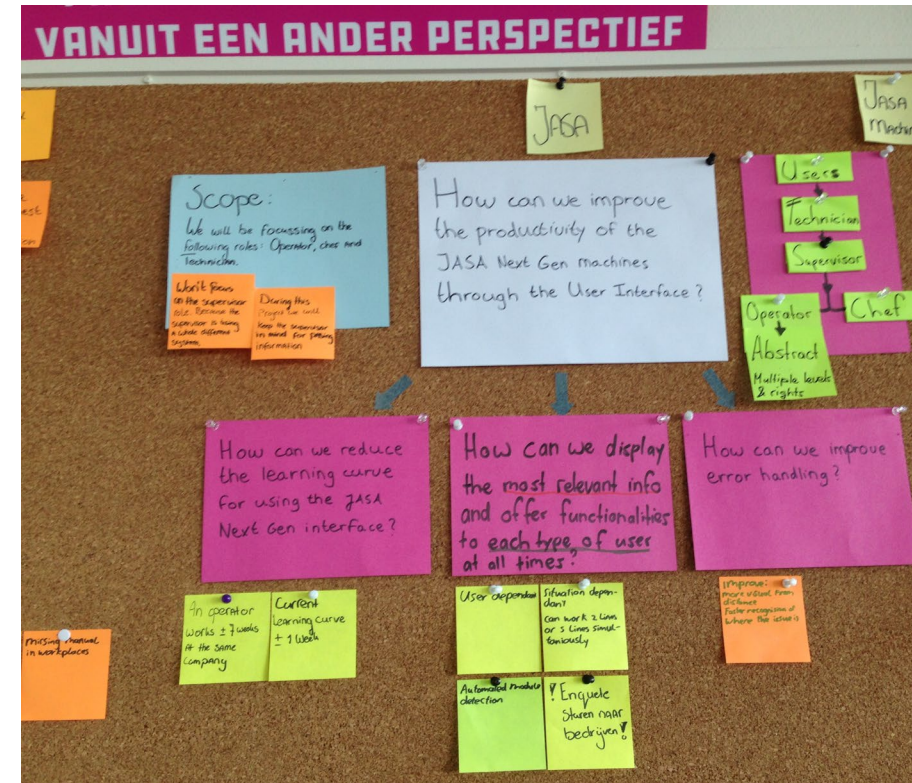 VANUIT EEN ANDER PERSPECTIEF
JASA
JASA
Scope:
We will be focussing on the
following roles: Operator, chef and
technician.
Won't focus
on the supervisor
role. Because the
supervisor is using
a whole different
system.
During this
Project we will
Keep the supervisor
in mind for passing
information
How can we improve
the productivity of the
JASA Next Gen machines
through the User Interface?
Users
Technician
Supervisor
Operator
Abstract
Multiple levels
& rights
Chef
How can we reduce
the learning curve
for using the JASA
Next Gen interface?
How can we display
the most relevant info
and offer functionalities
to each type of user
at all times?
How can we improve
error handling?
An operator
works ± 7 weeks
At the same
company
Current
Learning curve
± 1 week
User dependant
Situation depen-
dant
can work 2 lines
or 5 lines simul-
taniously
Automated module
detection
! Enquete
sturen naar
bedrijven!
Improve:
more visual from
distance
Faster recognition of
where the issue is
missing manual
in workplaces